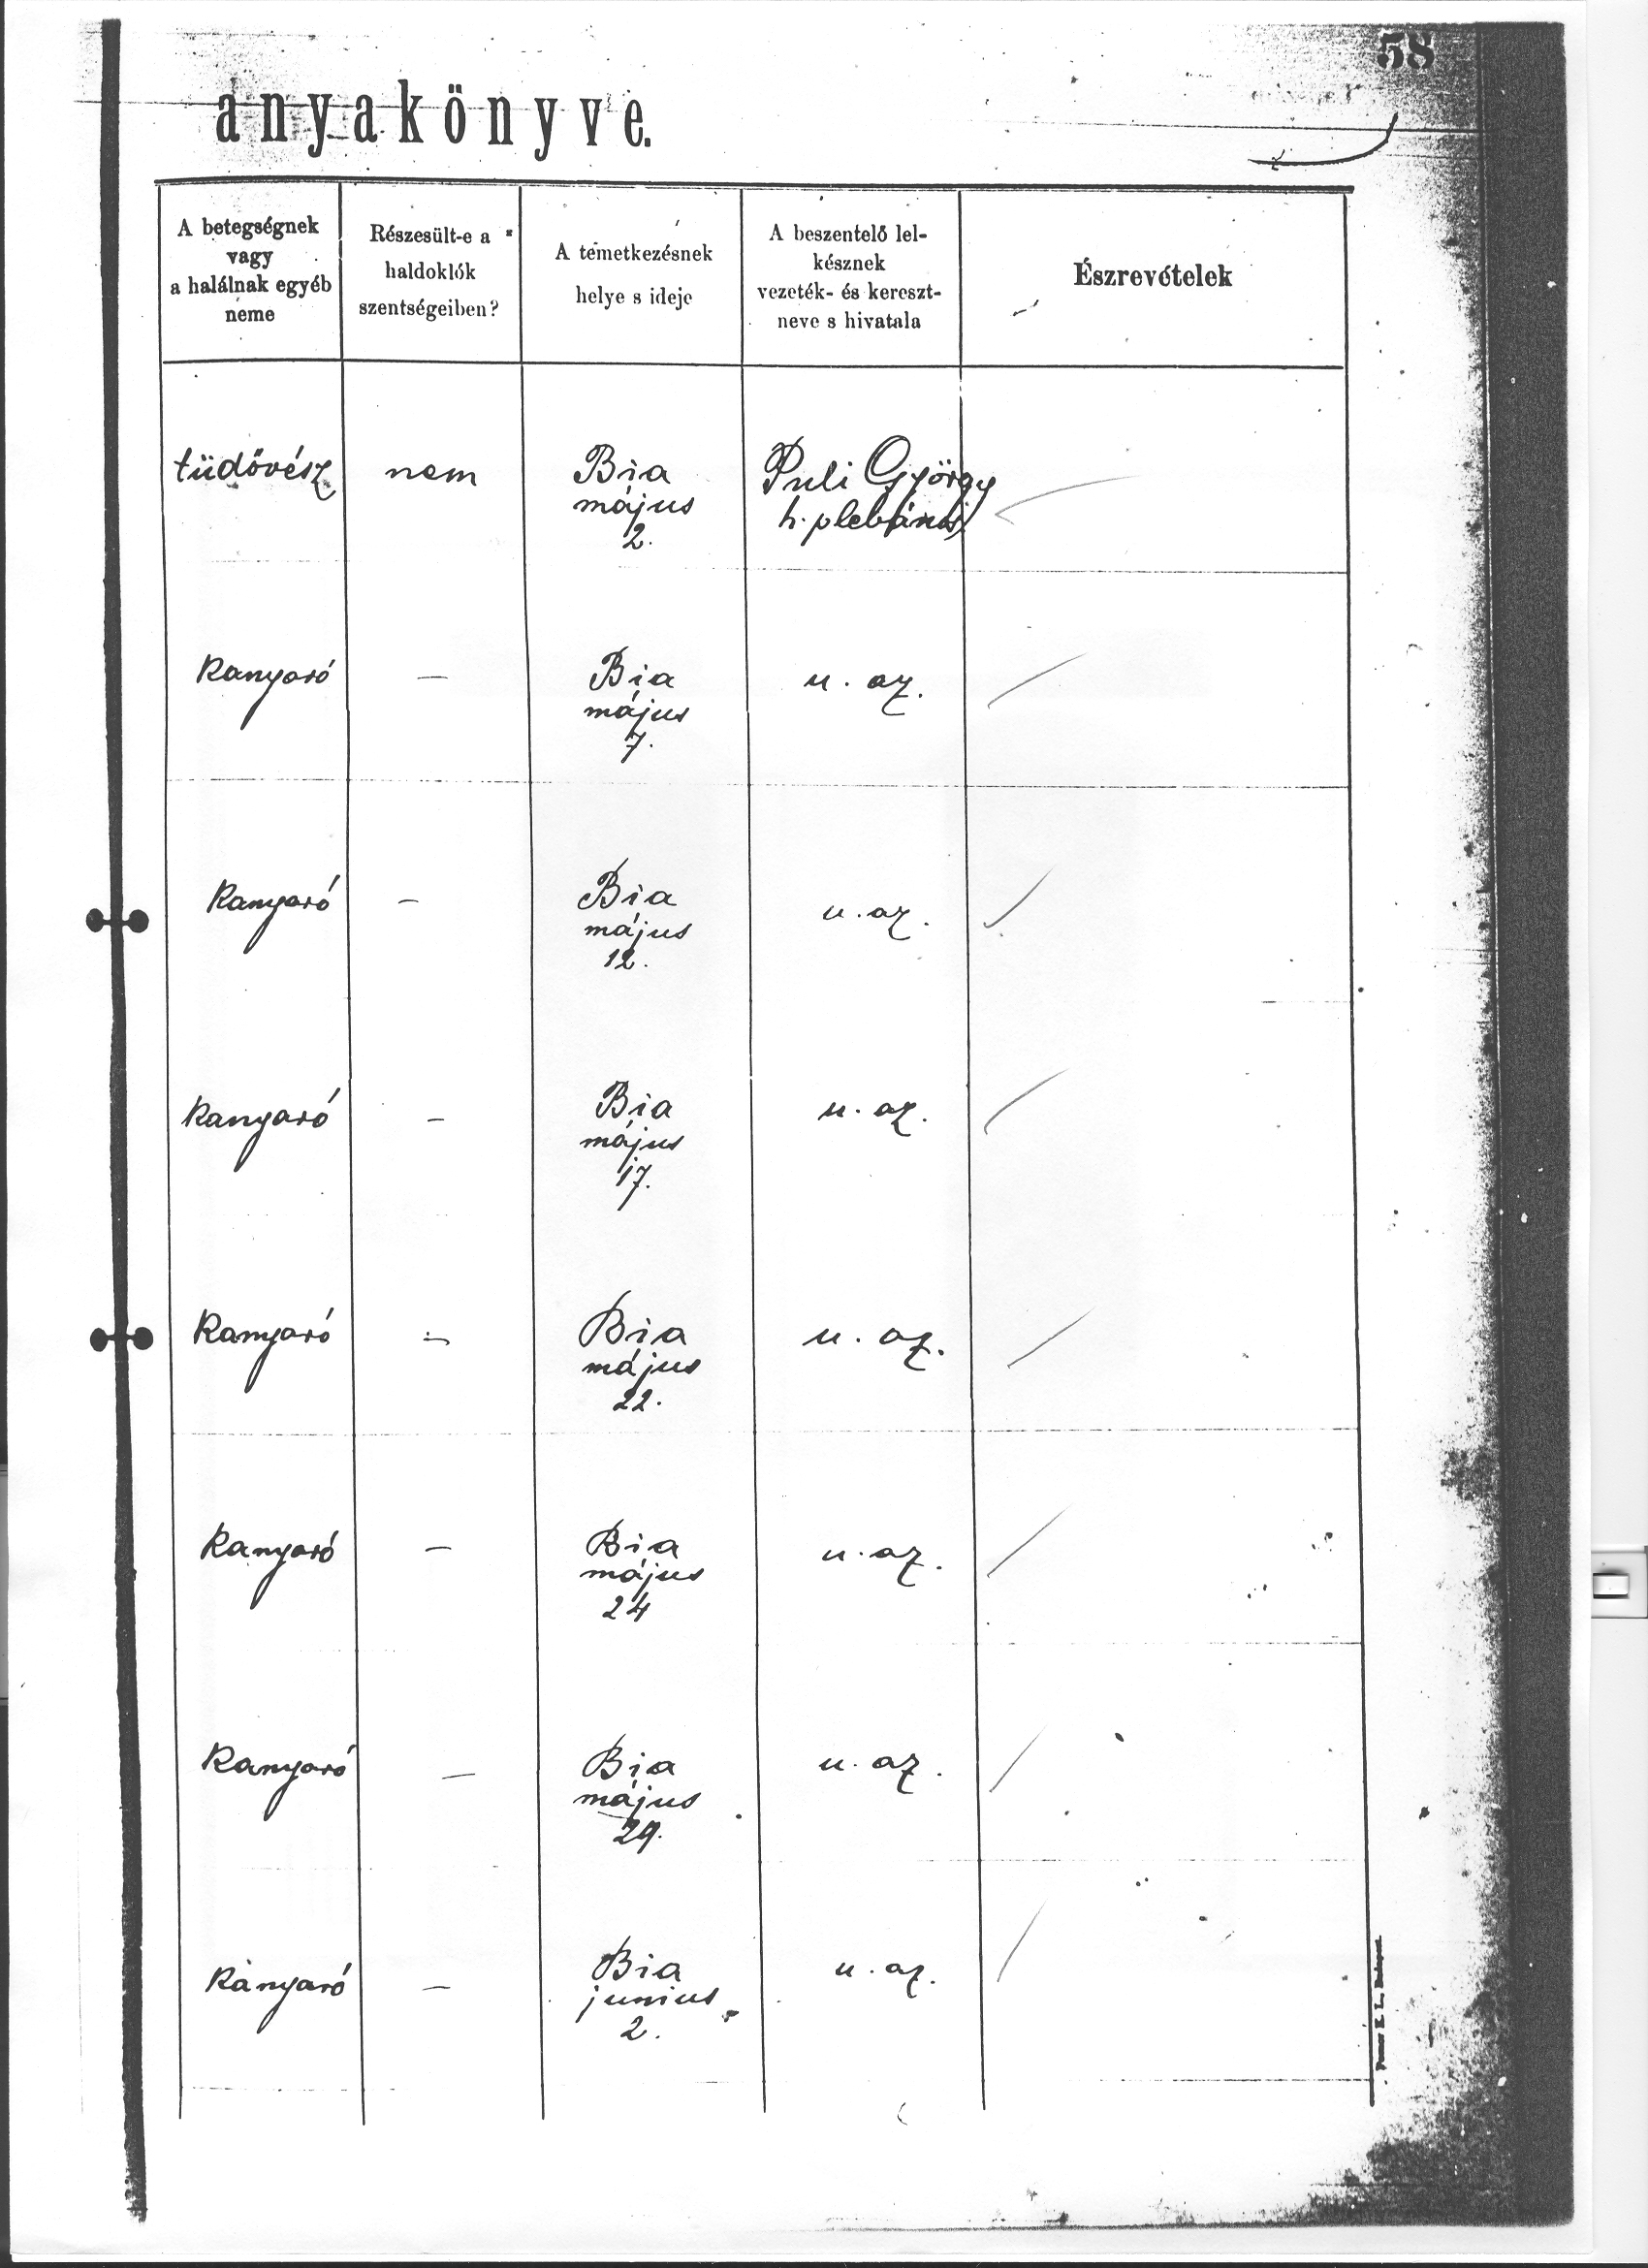 58
anyakönyve.
A betegségnek
vagy
a halálnak egyéb
neme
Részesült-e a
haldoklók
szentségeiben?
A temetkezésnek
helye s ideje
A beszentelő lel-
késznek
vezeték- és kereszt-
neve s hivatala
Észrevételek
tüdővész
nem
Bia
május
2.
Puli György
h. plebános
Kanyaró
—
Bia
május
7.
u. az.
Kanyaró
—
Bia
május
12.
u. az.
Kanyaró
—
Bia
május
17.
u. az.
Kanyaró
—
Bia
május
22.
u. az.
Kanyaró
—
Bia
május
24
u. az.
Kanyaró
—
Bia
május
29.
u. az.
Kanyaró
—
Bia
junius
2.
u. az.
K. L., Budapest.